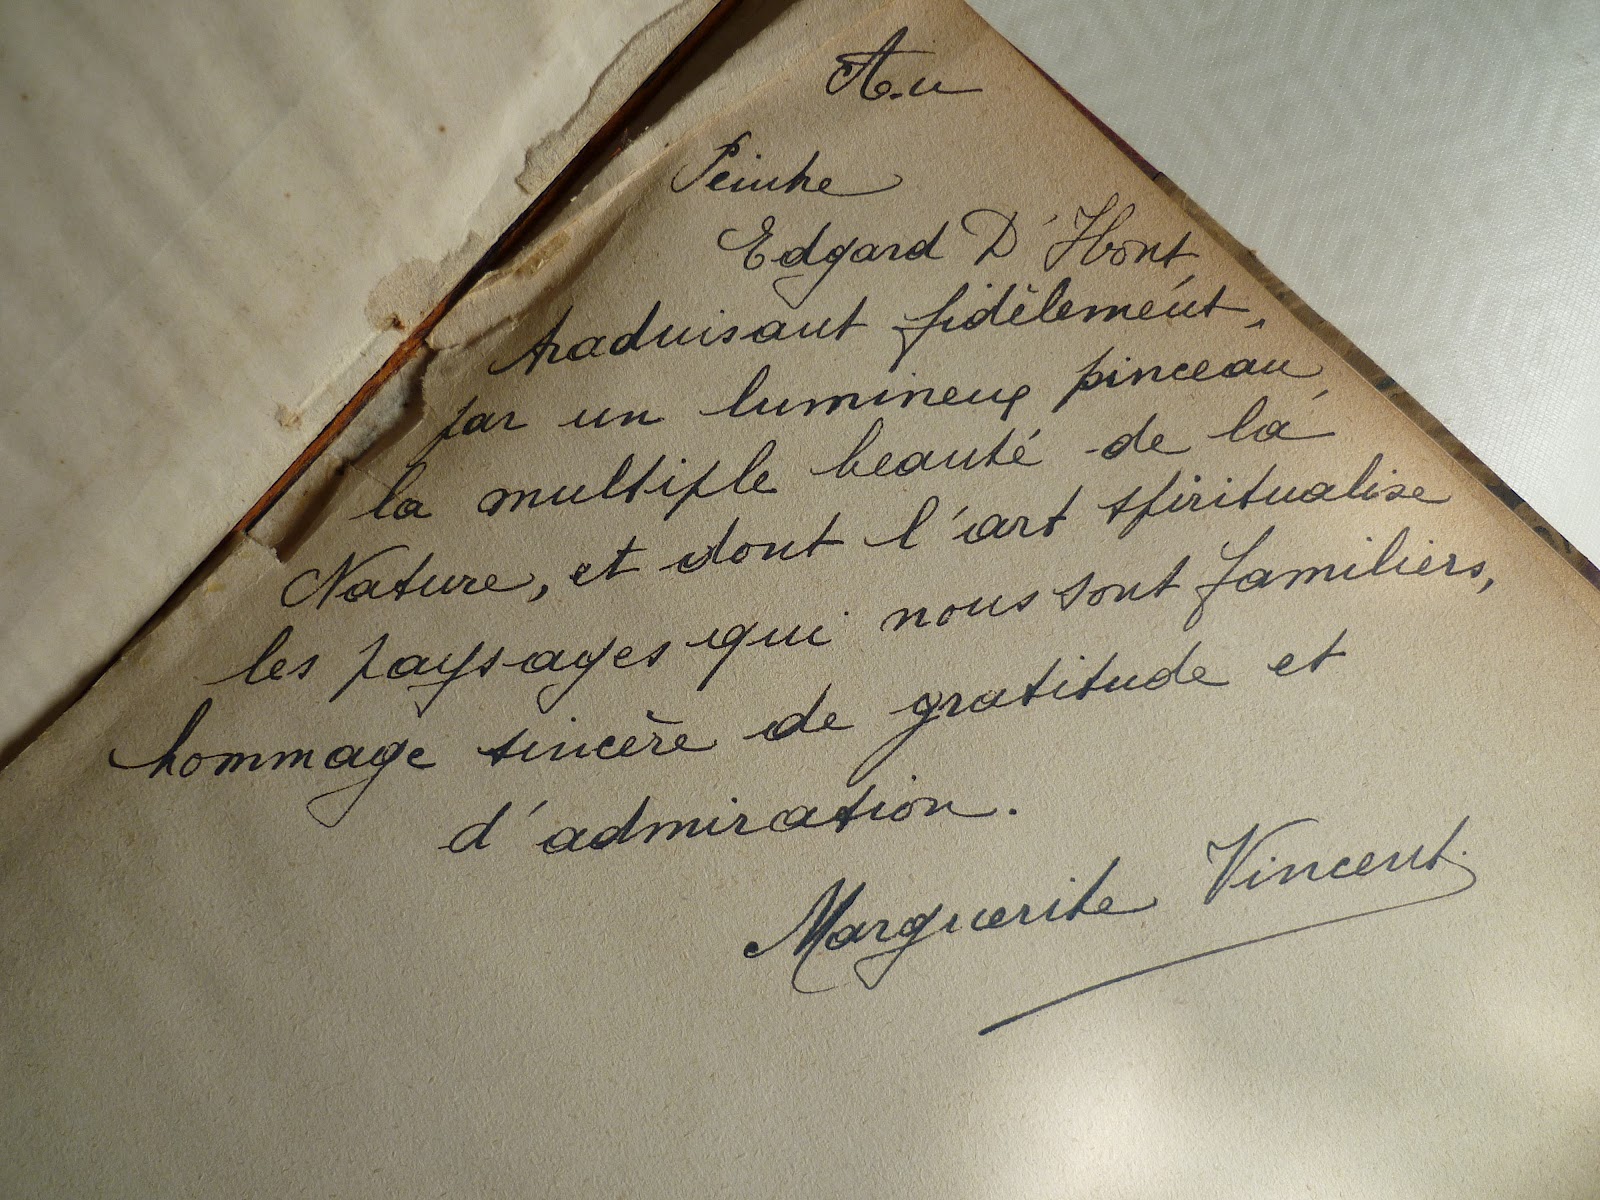 Au
Peintre
Edgard D'Hont
traduisant fidèlement,
par un lumineux pinceau,
la multiple beauté de la
Nature, et dont l'art spiritualise
les paysages qui nous sont familiers,
hommage sincère de gratitude et
d'admiration.
Marguerite Vincent.